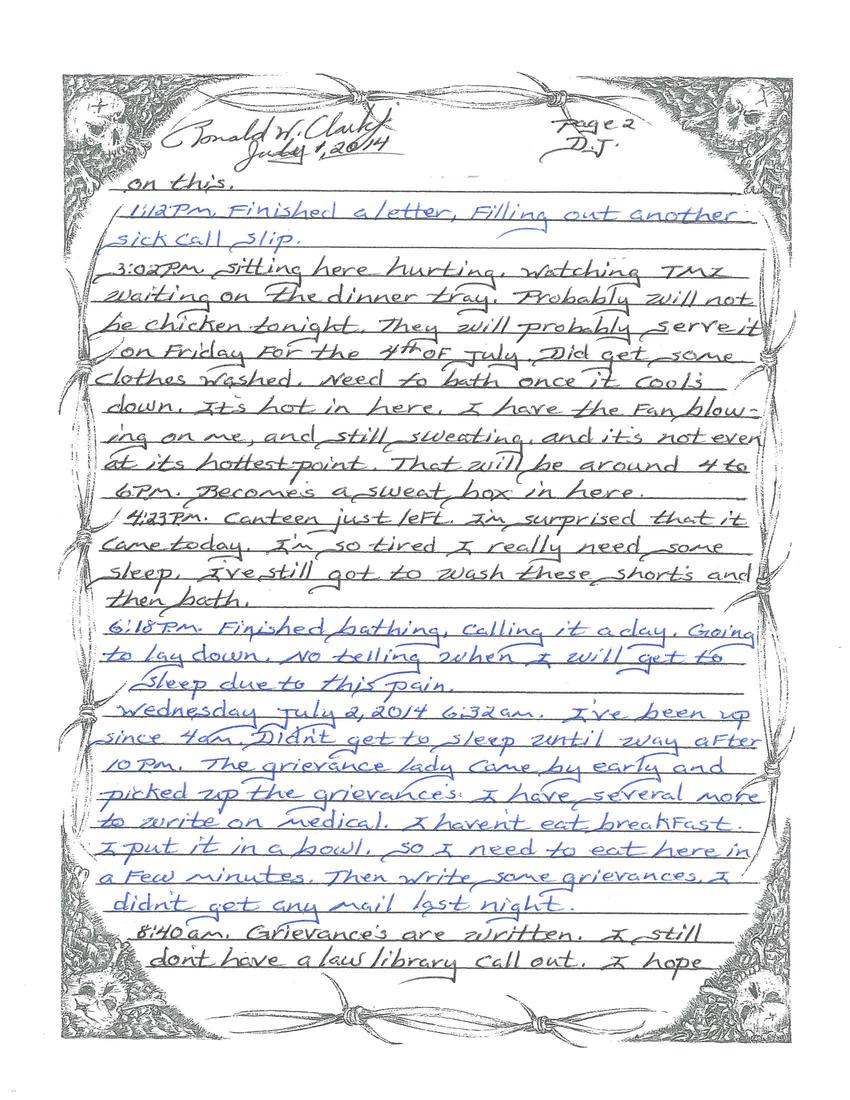 Ronald W. Clark Jr.
July 1, 2014
Page 2
D.J.
on this.
1:12 PM. Finished a letter, Filling out another
sick call slip.
3:02 PM. Sitting here hurting. Watching TMZ
waiting on the dinner tray. Probably will not
be chicken tonight. They will probably serve it
on Friday For the 4th of July. Did get some
clothes washed. Need to bath once it cools
down. It's hot in here. I have the Fan blow-
ing on me, and still sweating, and it's not even
at its hottest point. That will be around 4 to
6 PM. Becomes a sweat box in here.
4:23 PM. Canteen just left. I'm surprised that it
came today. I'm so tired I really need some
sleep. I've still got to wash these short's and
then bath.
6:18 PM. Finished bathing, calling it a day. Going
to lay down. No telling when I will get to
sleep due to this pain.
Wednesday July 2, 2014 6:32 am. I've been up
since 4am. Didn't get to sleep until way after
10 PM. The grievance lady came by early and
picked up the grievance's. I have several more
to write on medical. I haven't eat breakfast.
I put it in a bowl. So I need to eat here in
a Few minutes. Then write some grievances. I
didn't get any mail last night.
8:40 am. Grievance's are written. I still
don't have a law library call out. I hope